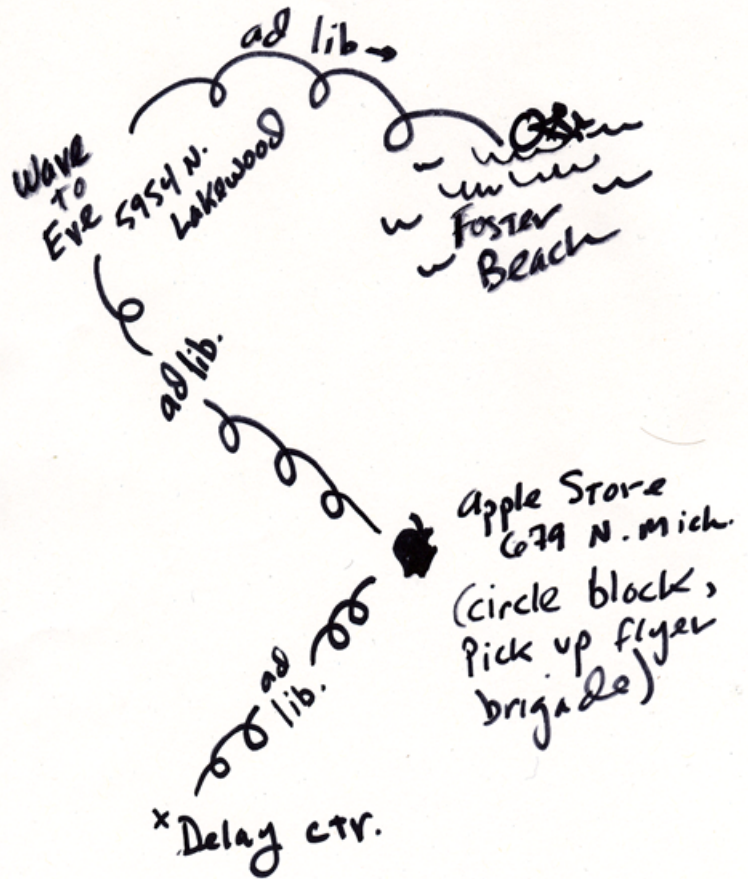 ad lib →
Wave
to
Eve
5954 N.
Lakewood
Foster
Beach
ad lib.
apple Store
679 N. Mich.
(circle block,
Pick up flyer
brigade)
ad
lib.
x Delay ctr.